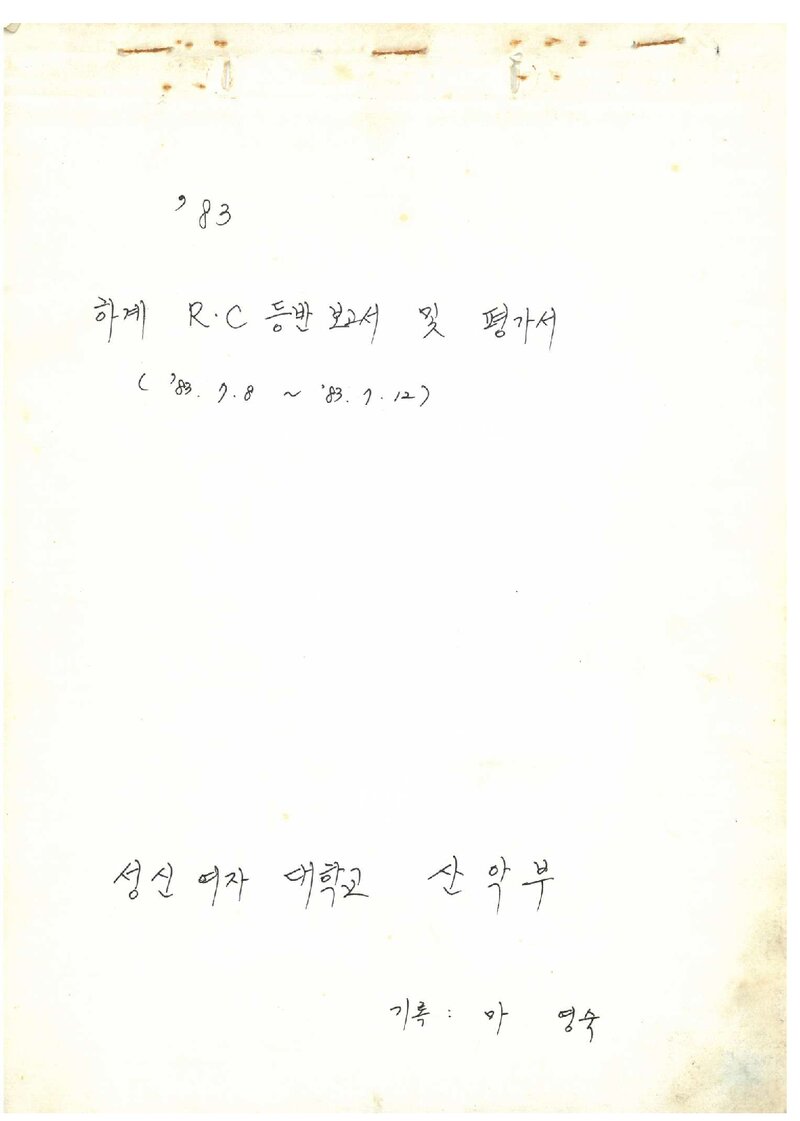 '83
하계 R.C 등반 보고서 및 평가서
( '83. 7. 8 ~ '83. 7. 12)
성신 여자 대학교 산악부
기록 : 마 영숙